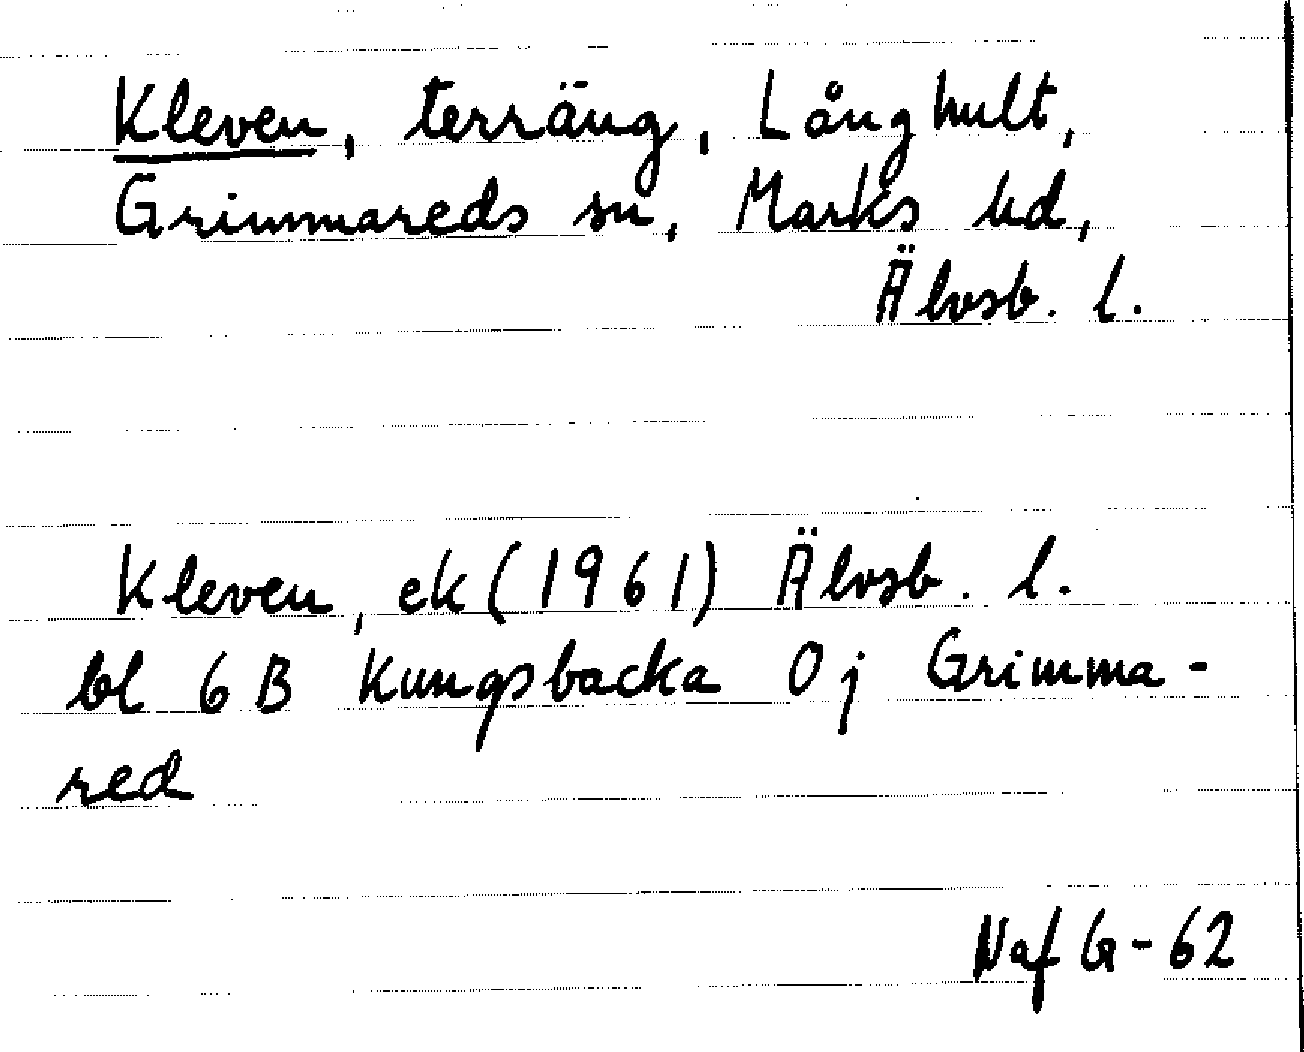 Kleven, terräng, Långhult,
Grimmareds sn, Marks hd,
Älvsb. l.
Kleven, ek (1961) Älvsb. l.
bl 6 B Kungsbacka 0 j Grimma-
red
Naf G-62